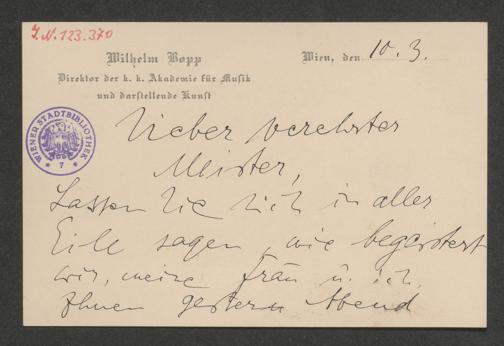 I.N. 123.370
Wilhelm Bopp
Direktor der k. k. Akademie für Musik
und darstellende Kunst
Wien, den 10. 3.
WIENER STADTBIBLIOTHEK
* 7 *
Lieber verehrter
Meister,
Lassen Sie sich in aller
Eile sagen, wie begeistert
wir, meine Frau u. ich,
Ihnen gestern Abend